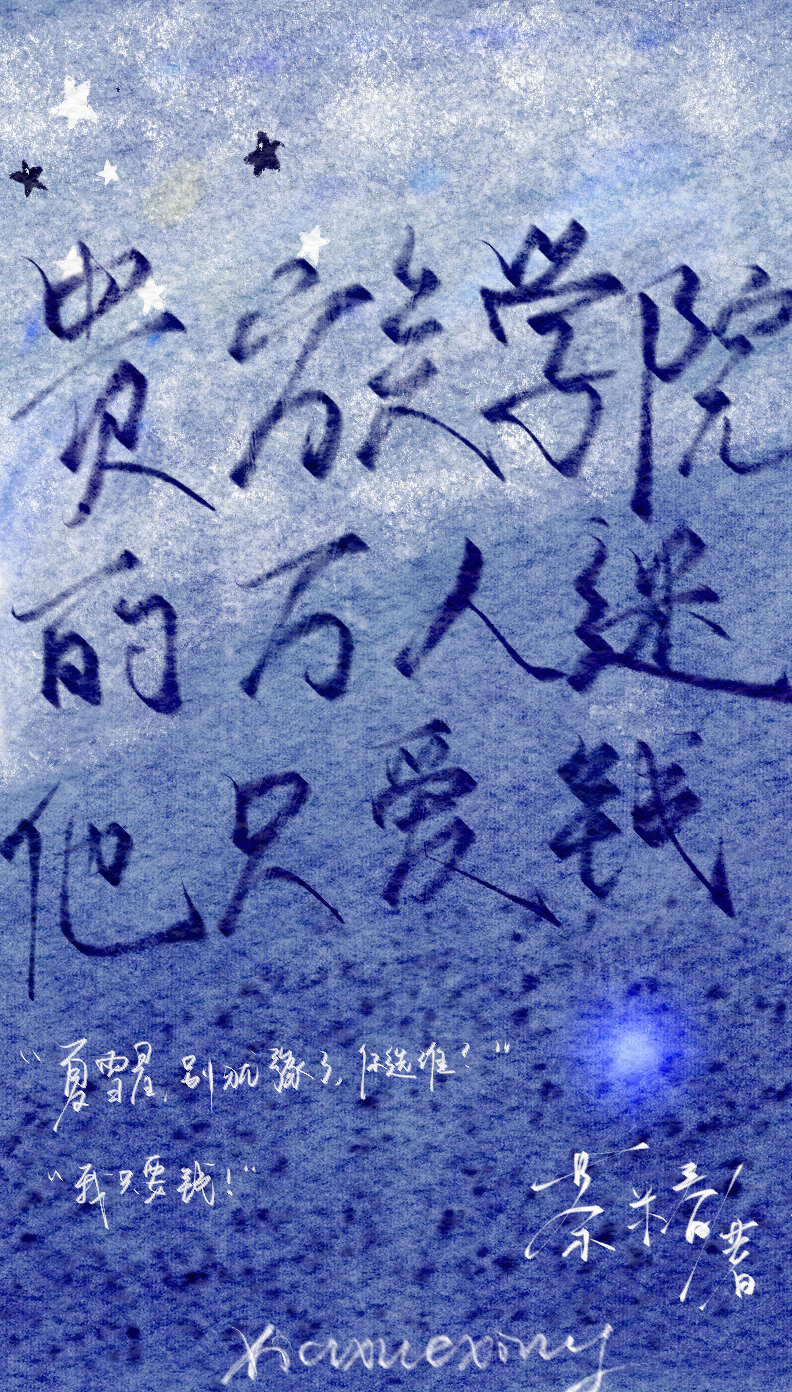 贵族学院
的万人迷
他只爱钱
“夏雪星,别流弹了,你选谁?”
“我只要钱!”
茶糖著
xiaxuexing